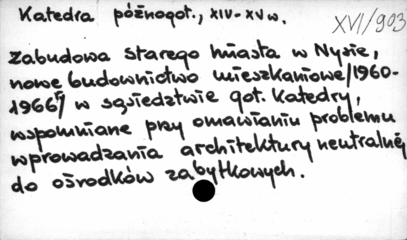 Katedra późnogot., XIV-XV w.
XVI/903
Zabudowa starego miasta w Nysie,
nowe budownictwo mieszkaniowe/1960-
1966/ w sąsiedztwie got. Katedry,
wspomniane przy omawianiu problemu
wprowadzania architektury neutralnej
do ośrodków zabytkowych.